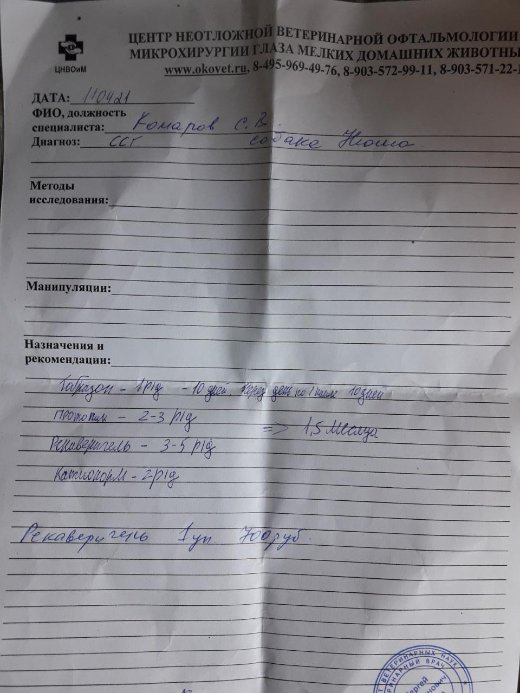 ЦНВОиМ
ЦЕНТР НЕОТЛОЖНОЙ ВЕТЕРИНАРНОЙ ОФТАЛЬМОЛОГИИ
МИКРОХИРУРГИИ ГЛАЗА МЕЛКИХ ДОМАШНИХ ЖИВОТНЫ
www.okovet.ru, 8-495-969-49-76, 8-903-572-99-11, 8-903-571-22-1
ДАТА: 110421
ФИО, должность
специалиста: Комаров С.В.
Диагноз: ССГ собака Нюша
Методы
исследования:
Манипуляции:
Назначения и
рекомендации:
- 1р/д - 10 дней, через день по 10 дней
- 2-3 р/д => 1,5 месяца
Рекаверигель - 3-5 р/д
Катионорм - 2 р/д
Рекаверигель 1 уп 700 руб.
ВЕТЕРИНАРНЫХ НАУК
ВРАЧ